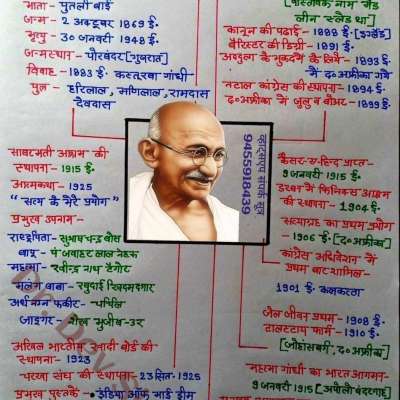 माता - पुतली बाई
जन्म - 2 अक्टूबर 1869 ई.
मृत्यु - 30 जनवरी 1948 ई.
जन्मस्थान - पोरबंदर [गुजरात]
विवाह - 1883 ई. कस्तूरबा गांधी
पुत्र - हरिलाल, मणिलाल, रामदास
देवदास
साबरमती आश्रम की
स्थापना - 1915 ई.
आत्मकथा - 1925
"सत्य के मेरे प्रयोग"
प्रमुख उपनाम -
राष्ट्रपिता - सुभाष चन्द्र बोस
बापू - पं जवाहर लाल नेहरू
महात्मा - रवीन्द्र नाथ टैगोर
मलंग बाबा - खुदाई खिदमतगार
अर्धनग्न फकीर - चर्चिल
जादूगर - शेख मुजीब-उर
अखिल भारतीय खादी बोर्ड की
स्थापना - 1923
चरखा संघ की स्थापना - 23 सित - 1925
प्रमुख पुस्तकें - इंडिया ऑफ माई ड्रीम
व्हाट्सएप संपर्क सूत्र
9455918439
[वास्तविक नाम मैड
लीन स्लेड था]
कानून की पढाई - 1888 ई. [इंग्लैंड]
बैरिस्टर की डिग्री - 1891 ई.
अब्दुल्ला के मुकदमे के लिये - 1893 ई.
में द० अफ्रीका गये
नटाल कांग्रेस की स्थापना - 1894 ई.
द० अफ्रीका में जुलू व बोअर - 1899 ई.
कैसर-ए-हिन्द प्राप्त -
9 जनवरी 1915 ई.
डरबन में फिनिक्स आश्रम
की स्थापना - 1904 ई.
सत्याग्रह का प्रथम प्रयोग
- 1906 ई. [द० अफ्रीका]
कांग्रेस अधिवेशन में
प्रथम बार शामिल -
1901 ई. कलकत्ता
जेल जीवन प्रथम - 1908 ई.
टालस्टाय फार्म - 1910 ई.
[जोहान्सबर्ग, द० अफ्रीका]
महात्मा गांधी का भारत आगमन -
9 जनवरी 1915 ई. [अपोलो बंदरगाह]